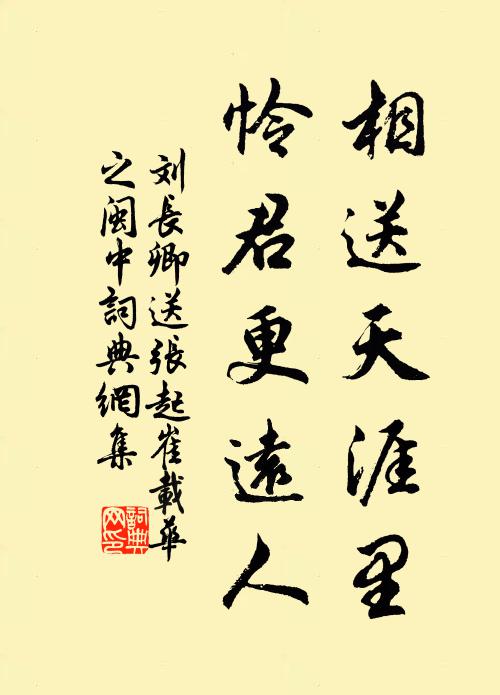 相送天涯里
怜君更遠人
刘長卿送張起崔載華
之閩中詞典網集
詞典网印